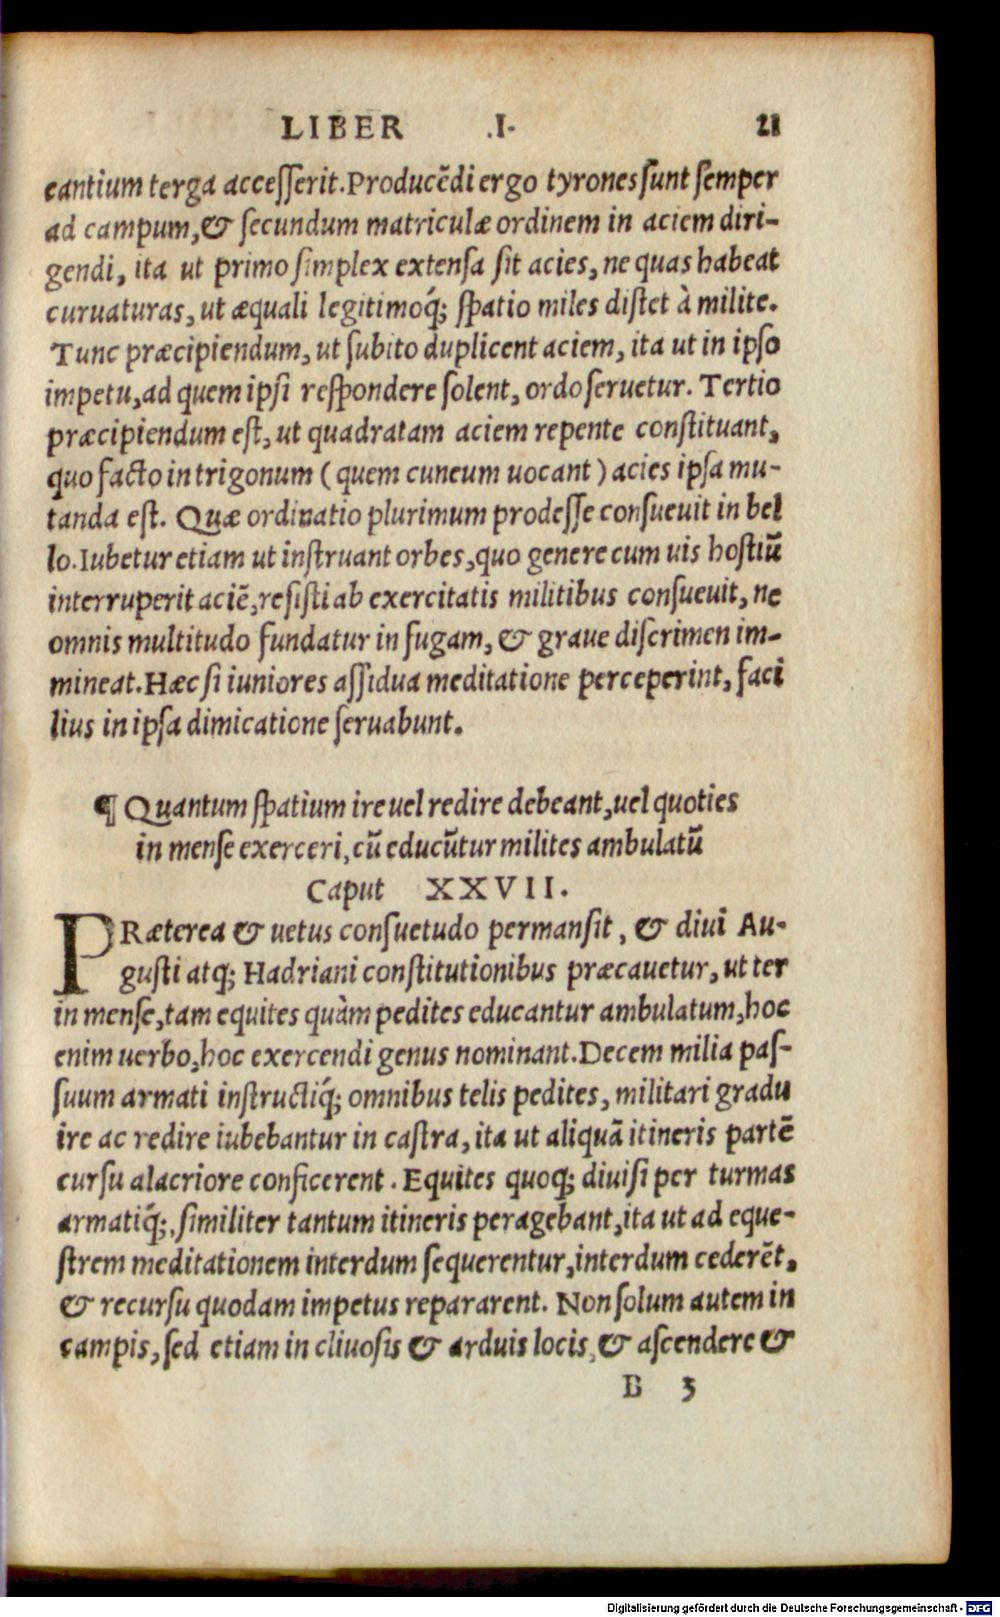 LIBER .I. 21
cantium terga accesserit. Producēdi ergo tyrones sunt semper
ad campum, & secundum matriculæ ordinem in aciem diri-
gendi, ita ut primo simplex extensa sit acies, ne quas habeat
curuaturas, ut æquali legitimoq́; spatio miles distet à milite.
Tunc præcipiendum, ut subito duplicent aciem, ita ut in ipso
impetu, ad quem ipsi respondere solent, ordo seruetur. Tertio
præcipiendum est, ut quadratam aciem repente constituant,
quo facto in trigonum (quem cuneum uocant) acies ipsa mu-
tanda est. Quæ ordinatio plurimum prodesse consueuit in bel
lo. Iubetur etiam ut instruant orbes, quo genere cum uis hostiū
interruperit aciē, resisti ab exercitatis militibus consueuit, ne
omnis multitudo fundatur in fugam, & graue discrimen im-
mineat. Hæc si iuniores assidua meditatione perceperint, faci
lius in ipsa dimicatione seruabunt.
¶ Quantum spatium ire uel redire debeant, uel quoties
in mense exerceri, cū educūtur milites ambulatū
Caput XXVII.
PRæterea & uetus consuetudo permansit, & diui Au-
gusti atq; Hadriani constitutionibus præcauetur, ut ter
in mense, tam equites quàm pedites educantur ambulatum, hoc
enim uerbo, hoc exercendi genus nominant. Decem milia pas-
suum armati instructiq́; omnibus telis pedites, militari gradu
ire ac redire iubebantur in castra, ita ut aliquā itineris partē
cursu alacriore conficerent. Equites quoq; diuisi per turmas
armatiq́;, similiter tantum itineris peragebant, ita ut ad eque-
strem meditationem interdum sequerentur, interdum cederēt,
& recursu quodam impetus repararent. Non solum autem in
campis, sed etiam in cliuosis & arduis locis, & ascendere &
B 3
Digitalisierung gefördert durch die Deutsche Forschungsgemeinschaft - DFG